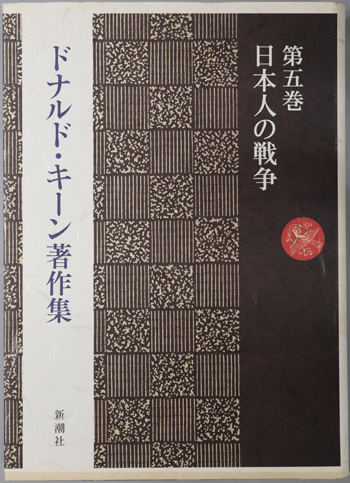 第五巻
日本人の戦争
ドナルド・キーン著作集
新潮社